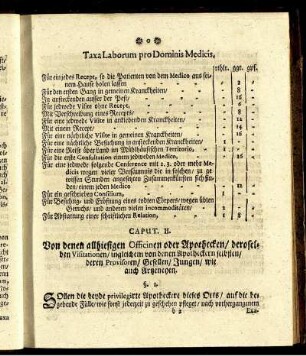 Taxa Laborum pro Dominis Medicis.
rthlr. ggr. gpf.
Für ein jedes Recept, so die Patienten von dem Medico aus sei-
nem Hause holen lassen
Für den ersten Gang in gemeinen Kranckheiten/
In ansteckenden ausser der Pest/
Für jedwede Visite ohne Recept,
Mit Verschreibung eines Recepts/
Für eine jedwede Visite in ansteckenden Kranckheiten/
Mit einem Recept/
Für eine nächtliche Visite in gemeinen Kranckheiten/
Für eine nächtliche Besuchung in ansteckenden Kranckheiten/
Für eine Reise über Land im Mühlhäusischen Territorio,
Für die erste Consultation eines jedweden Medico,
Für eine jedwede folgende Conference unter 2. 3. oder mehr
Medicis wegen vieler Versäumnis die in solchen/ zu ge-
wissen Stunden angesetzten Zusammenkünften
den/ einem jeden Medico
Für ein gerichtliches Consilium,
Für Besichtig- und Eröffnung eines todten Cörpers/ wegen üblen
Geruchs/ und anderer vielen Incommoditäten/
Für Abstattung einer schriftlichen Relation,
CAPUT. II.
Von denen allhiesigen Officinen oder Apothecken/ derosel-
ben Visitationen, ingleichem von denen Apotheckern selbsten/
deren Provisoren/ Gesellen/ Jungen/ wie
auch Artzneyen.
§. 1.
Sollen die beyde privilegirte Apothecker dieses Orts/ auf die be-
gebende Fälle/ wie sonst jederzeit zu geschehen pfleget/ nach vorhergangenem
b 2 Exa-